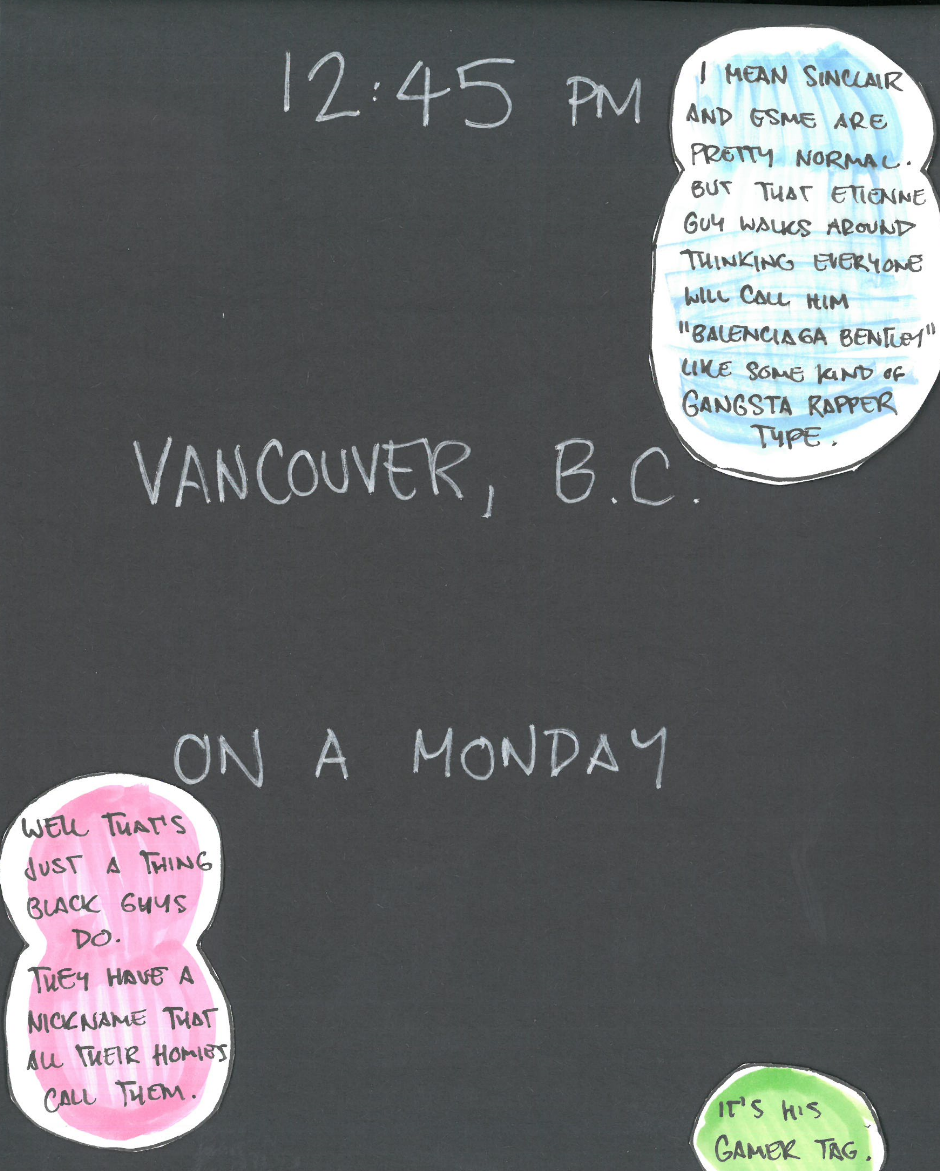 12:45 PM
I MEAN SINCLAIR
AND ESME ARE
PRETTY NORMAL.
BUT THAT ETIENNE
GUY WALKS AROUND
THINKING EVERYONE
WILL CALL HIM
"BALENCIAGA BENTLEY"
LIKE SOME KIND OF
GANGSTA RAPPER
TYPE.
VANCOUVER, B.C.
ON A MONDAY
WELL THAT'S
JUST A THING
BLACK GUYS
DO.
THEY HAVE A
NICKNAME THAT
ALL THEIR HOMIES
CALL THEM.
IT'S HIS
GAMER TAG.